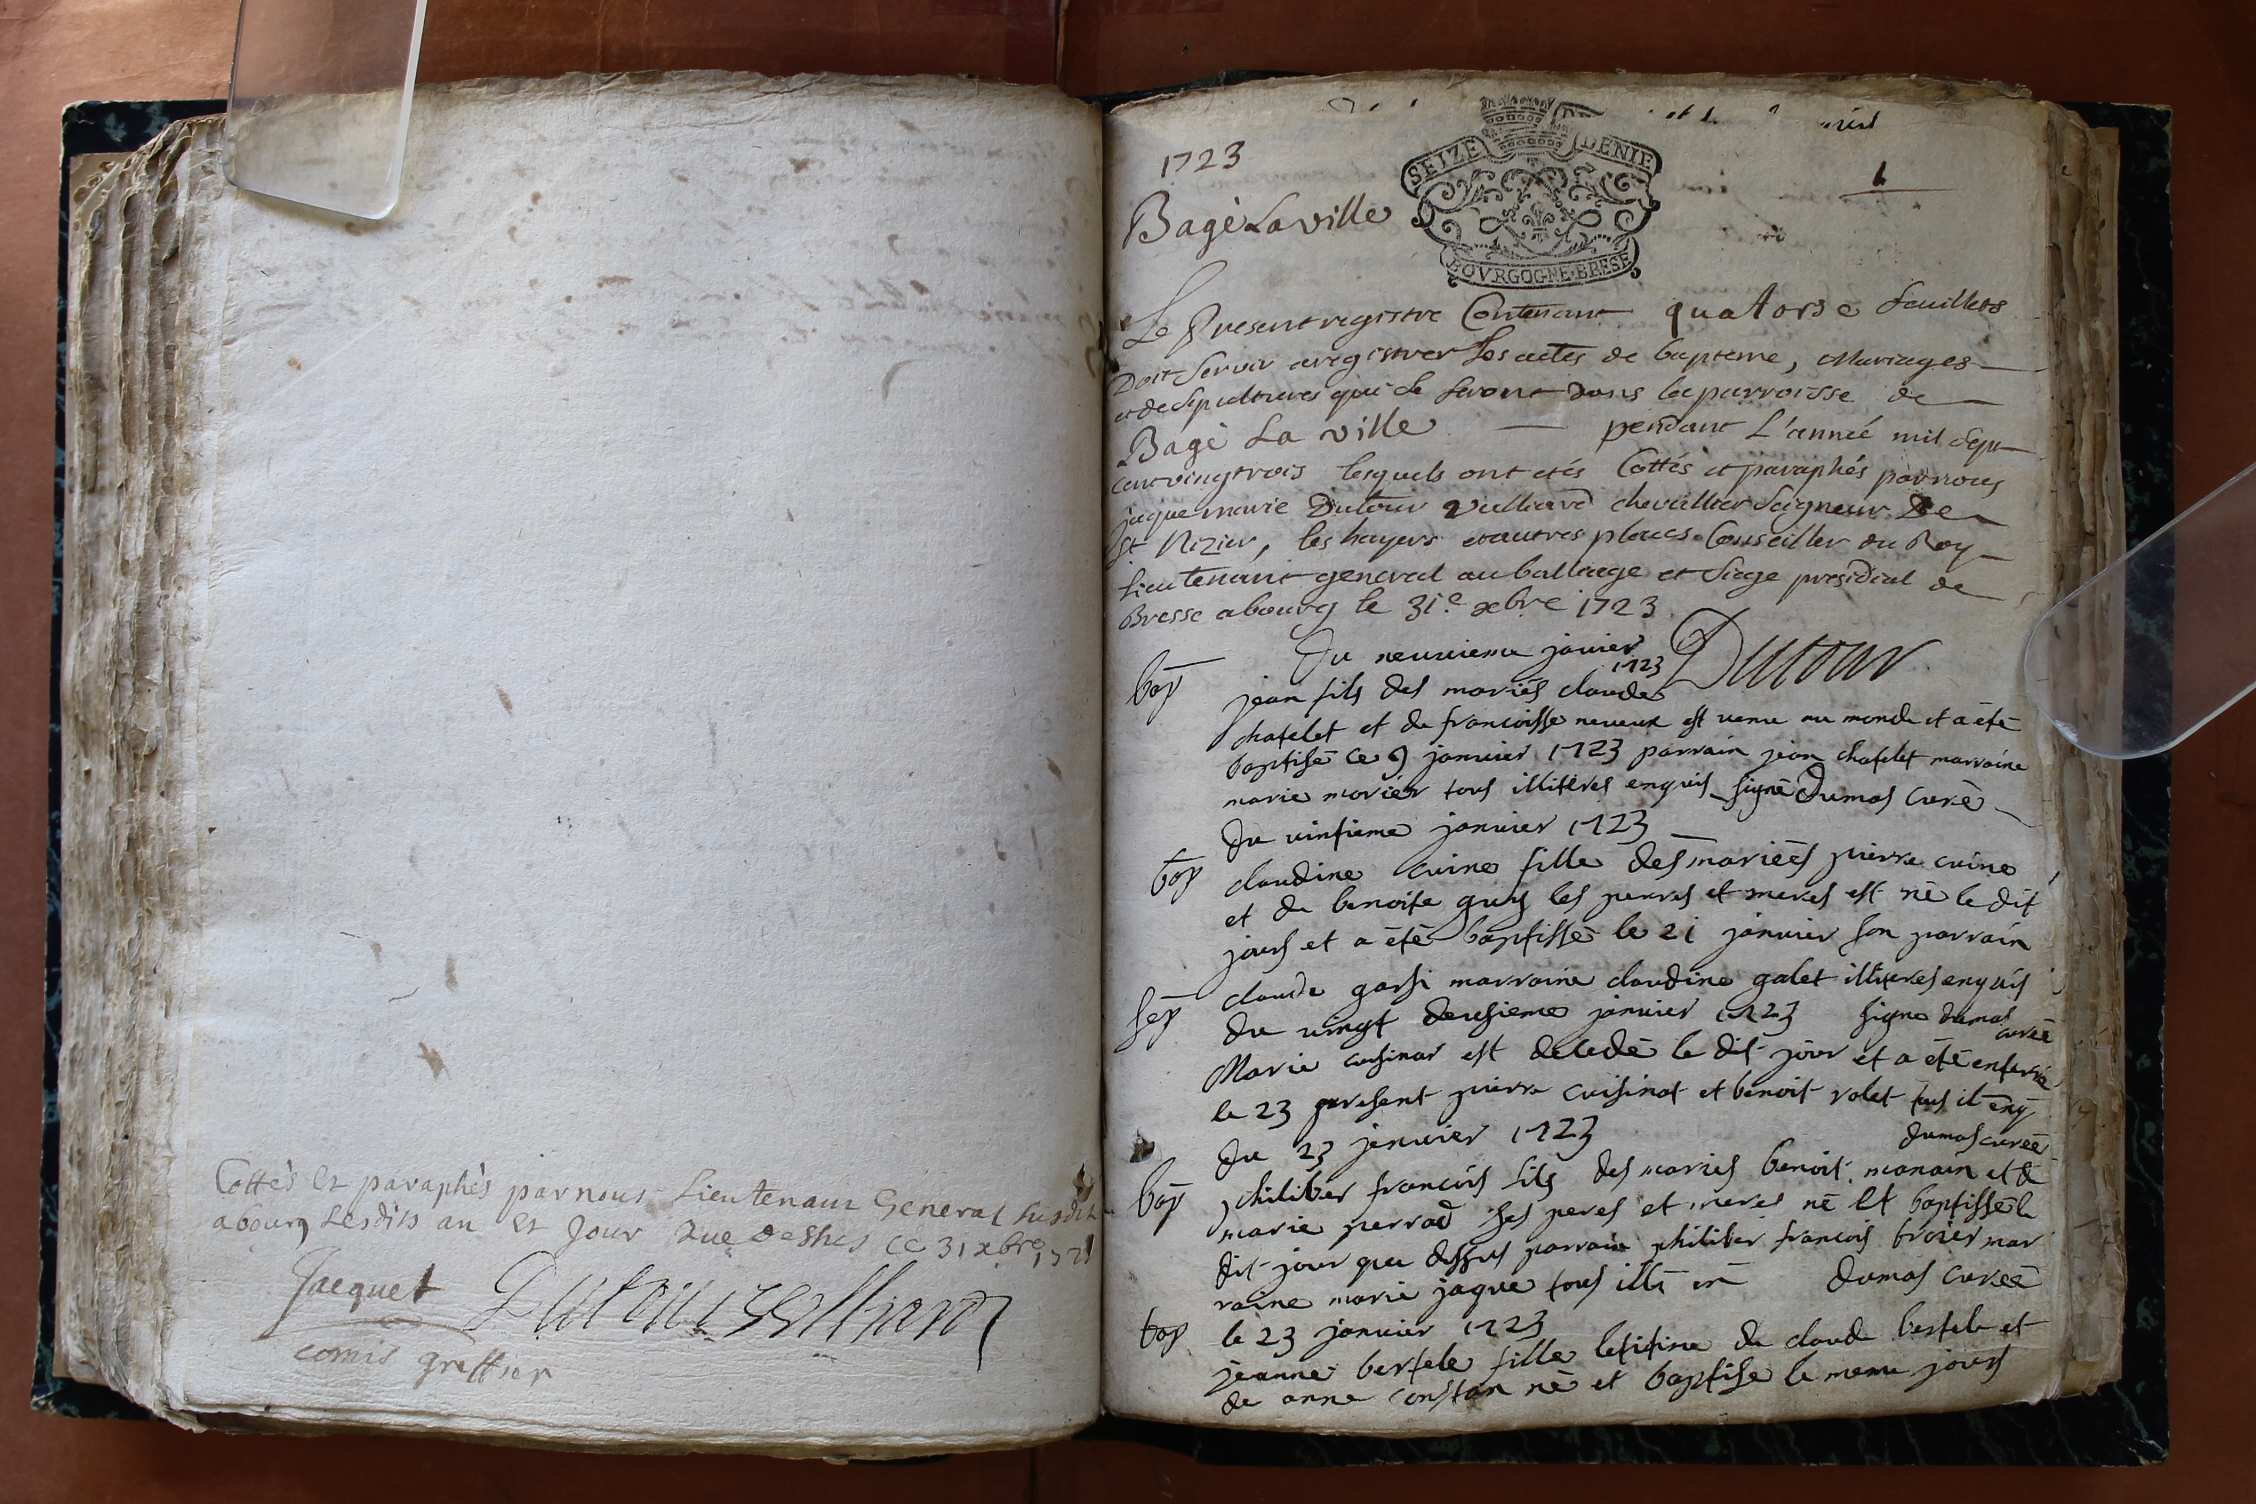 Cottés et paraphés par nous Lieutenant General susdit
a bourg Lesdits an et Jour que dessus ce 31 xbre
Jacquet
comis greffier
1723
1
SEIZE DENIE
BOVRGOGNE·BRESE
Bagé La ville
Le Present registre Contenant quatorse feuillets
Doit servir a registrer Les actes de bapteme, Mariages
et de sepultures qui se feront dans la parroisse de
Bagé La ville pendant L'année mil sept
cent vingt trois lesquels ont etés Cottés et paraphés par nous
jaque marie Dutour Vulliard chevallier Seigneur De
St Nizier, les hayers et autres places Conseiller du Roy
Lieutenant general au balliage et siege presidial de
Bresse a bourg le 31e xbre 1723
Dutour
bap
Du neuvieme janvier
1723
jean fils des mariés claude
chatelet et de francoisse neveux est venu au monde et a été
baptisé ce 9 janvier 1723 parrain jean chatelet marraine
marie morier tous illiteres enquis signé Dumas Curé
Du vintieme janvier 1723
bap
claudine cuine fille des mariées pierre cuine
et de benoite guy les perres et meres est né le dit
jours et a été baptissé le 21 janvier son parrain
claude garsi marraine claudine galet illiteres enquis
sep
du vingt deusieme janvier 1723 signe dumas
cureé
Marie cusinas est decedé le dit jour et a été enterré
le 23 present pierre cuisinat et benoit volet tous il enq
Du 23 janvier 1723
dumas cureé
bap
philiber francois fils des mariés benoit manain et de
marie perrad ses peres et meres né et baptissé le
dit jour que dessus parrain philiber francois broier mar
raine marie jaque tous illi en dumas cureé
bap
le 23 janvier 1723
jeanne bertele fille letitime de claude bertele et
de anne constan né et baptise le meme jours